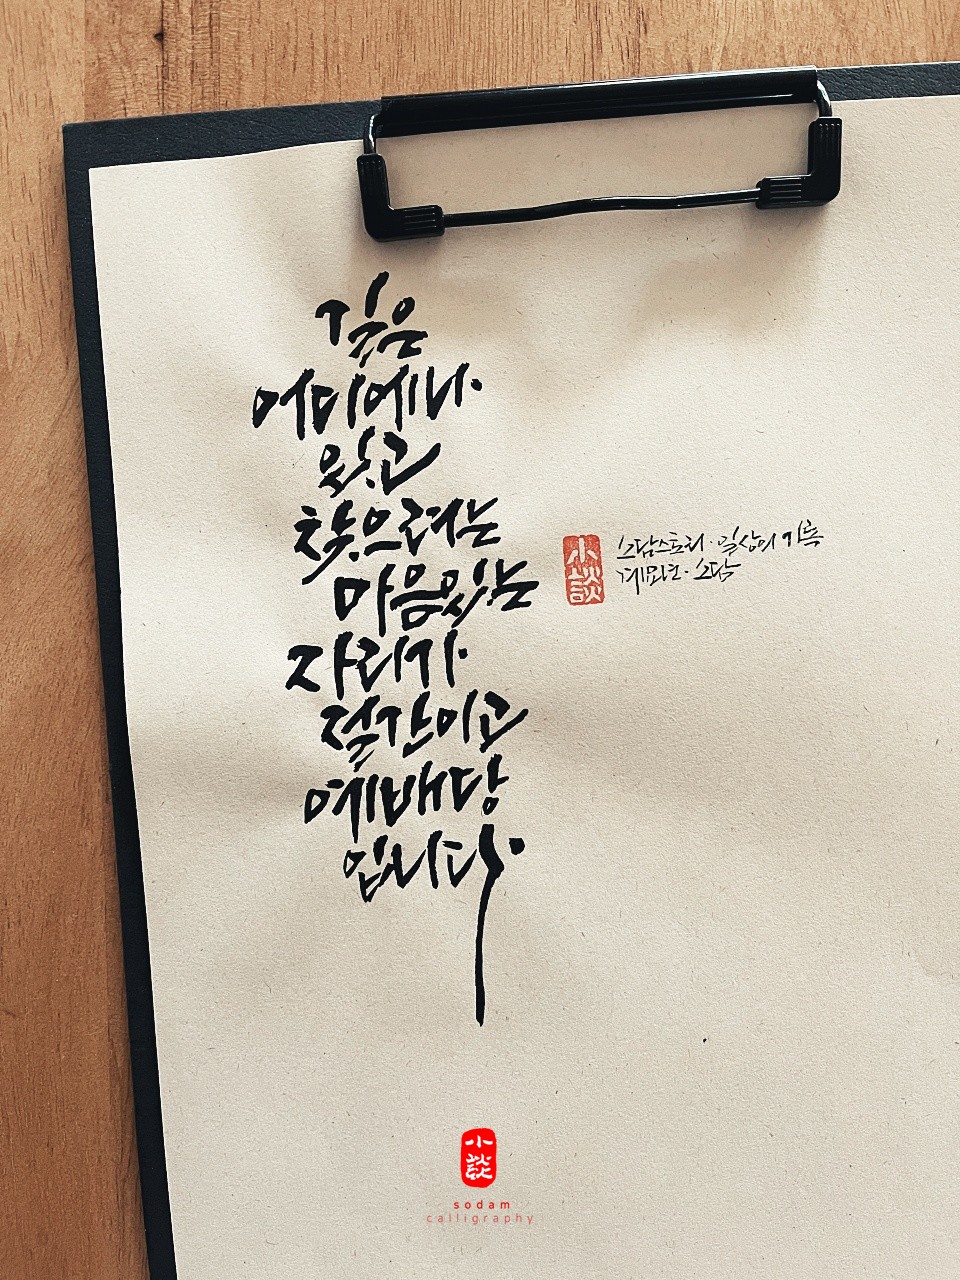 길은
어디에나
있고
찾으려는
마음있는
자리가
절간이고
예배당
입니다
小談
소담스토리·일상의 기록
소담
小談
sodam
calligraphy